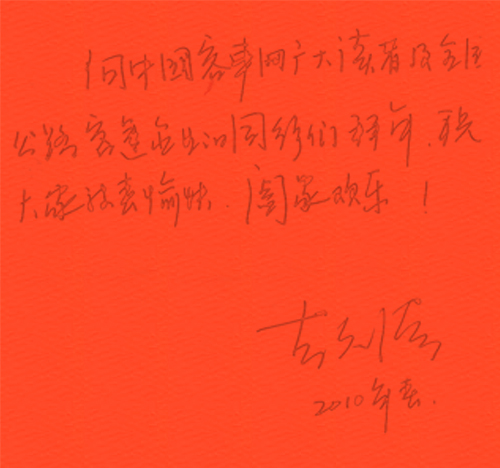 向中国客车网广大读者及全国
公路客运企业的同行们拜年,祝
大家新春愉快.阖家欢乐!
2010年春.